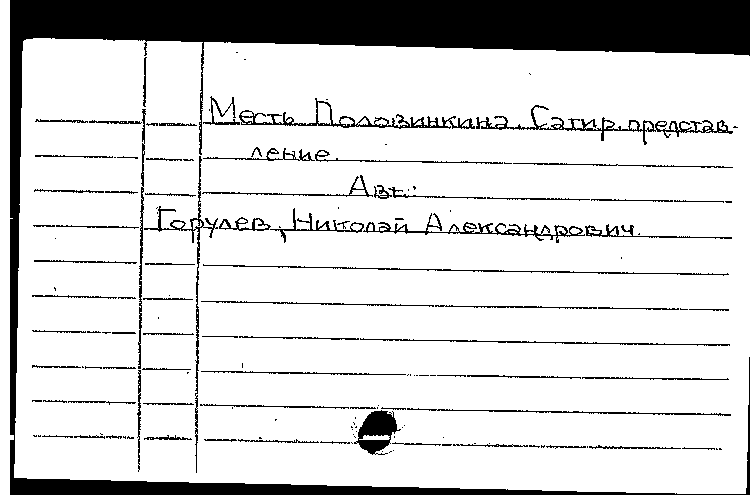 Месть Половинкина. Сатир. представ-
ление.
Авт.:
Горулев, Николай Александрович.